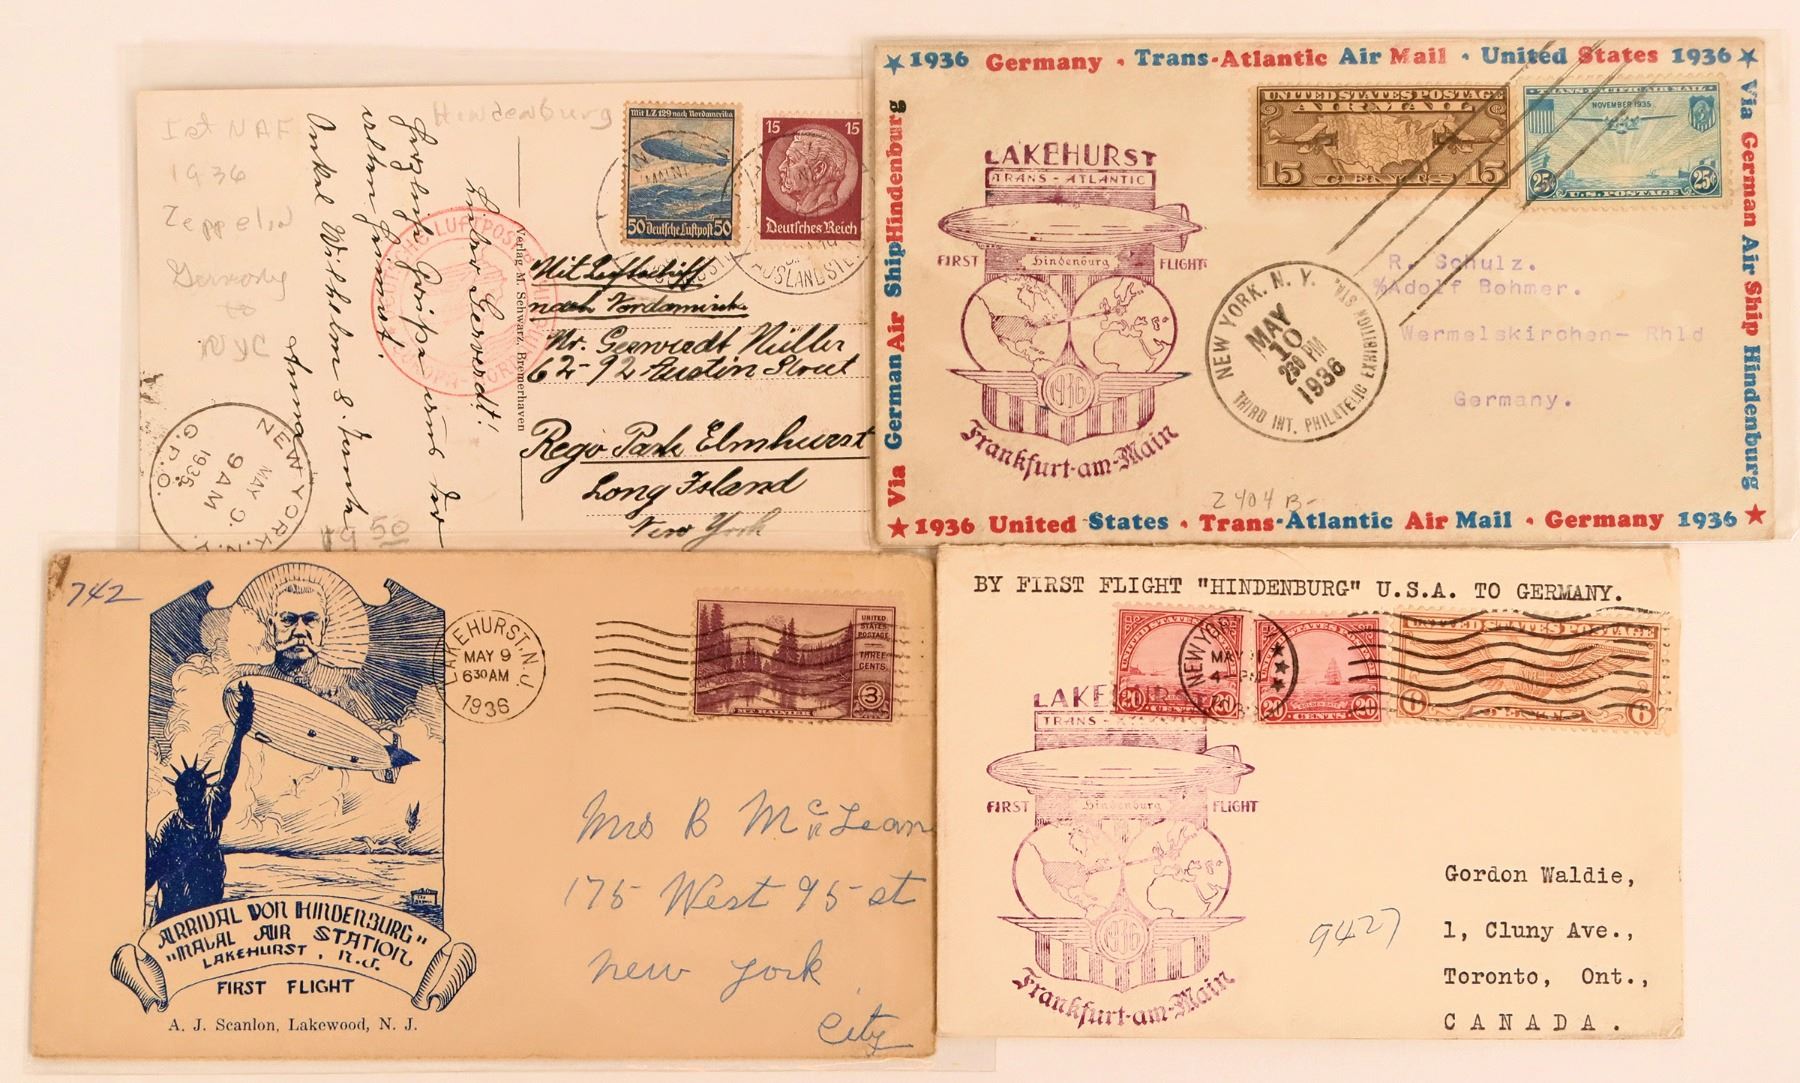 Ist NAF
1936
Zeppelin
Germany
to
NYC
Hindenburg
Onkel Wilhelm
Anna
Mit LZ 129 nach Nordamerika
50 Deutsche Luftpost 50
15 15
Deutsches Reich
DEUTSCHE LUFTPOST
Verlag M. Schwarz, Bremerhaven
Mit Luftschiff
nach Nordamerika
Mr. Gerverdt Müller
62-92 Austin Street
Rego Park Elmhurst
Long Island
New York
NEW YORK, N.Y.
MAY 9.
9 AM
1936
G.P.O.
50
★ 1936 Germany • Trans-Atlantic Air Mail • United States 1936 ★
Via German Air Ship Hindenburg
Via German Air Ship Hindenburg
★ 1936 United States • Trans-Atlantic Air Mail • Germany 1936 ★
UNITED STATES POSTAGE
AIR MAIL
15 CENTS 15
TRANS-PACIFIC AIR MAIL
NOVEMBER 1935
25¢ U.S. POSTAGE 25¢
LAKEHURST
TRANS-ATLANTIC
FIRST Hindenburg FLIGHT
1936
Frankfurt-am-Main
NEW YORK. N. Y.
MAY
10
230 PM
1936
THIRD INT. PHILATELIC EXHIBITION STA.
R. Schulz.
%Adolf Bohmer.
Wermelskirchen- Rhld
Germany.
2404 B-
742
LAKEHURST, N.J.
MAY 9
630 AM
1936
UNITED
STATES
POSTAGE
THREE
CENTS
3
MT. RAINIER
Mrs B McLean
175 West 95 st
New York
City
ARRIVAL VON HINDENBURG"
"NAVAL AIR STATION
LAKEHURST, N.J.
FIRST FLIGHT
A. J. Scanlon, Lakewood, N. J.
BY FIRST FLIGHT "HINDENBURG" U.S.A. TO GERMANY.
20 CENTS 20
20 CENTS 20
GOLDEN GATE
UNITED STATES POSTAGE
6 CENTS 6
NEW YORK
MAY
LAKEHURST
TRANS-
FIRST Hindenburg FLIGHT
1936
Frankfurt-am-Main
9427
Gordon Waldie,
1, Cluny Ave.,
Toronto, Ont.,
CANADA.